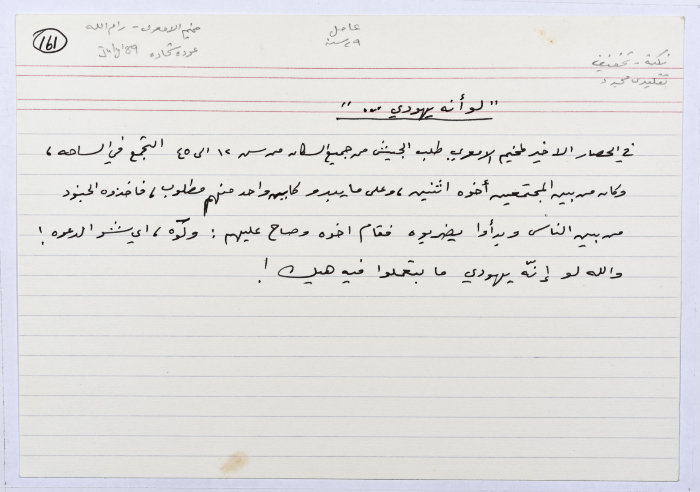 161
مخيم الامعري - رام الله
عوده شحاده 89
عامل
٢٩ سنة
نكتة - تخفيف
تقليدي محيد
"لو أنه يهودي ..."
في الحصار الاخير لمخيم الامعري طلب الجيش من جميع السكان من سن ١٢ الى ٤٥ التجمع في الساحه،
وكان من بين المجتمعين أخوه اثنين، وعلى ما يبدو كاين واحد منهم مطلوب، فاخذوه الجنود
من بين الناس وبدأوا يضربوه فقام اخوه وصاح عليهم: ولوّه، اي شو الدعوه!
والله لو إنّه يهودي ما بتعملوا فيه هيك!